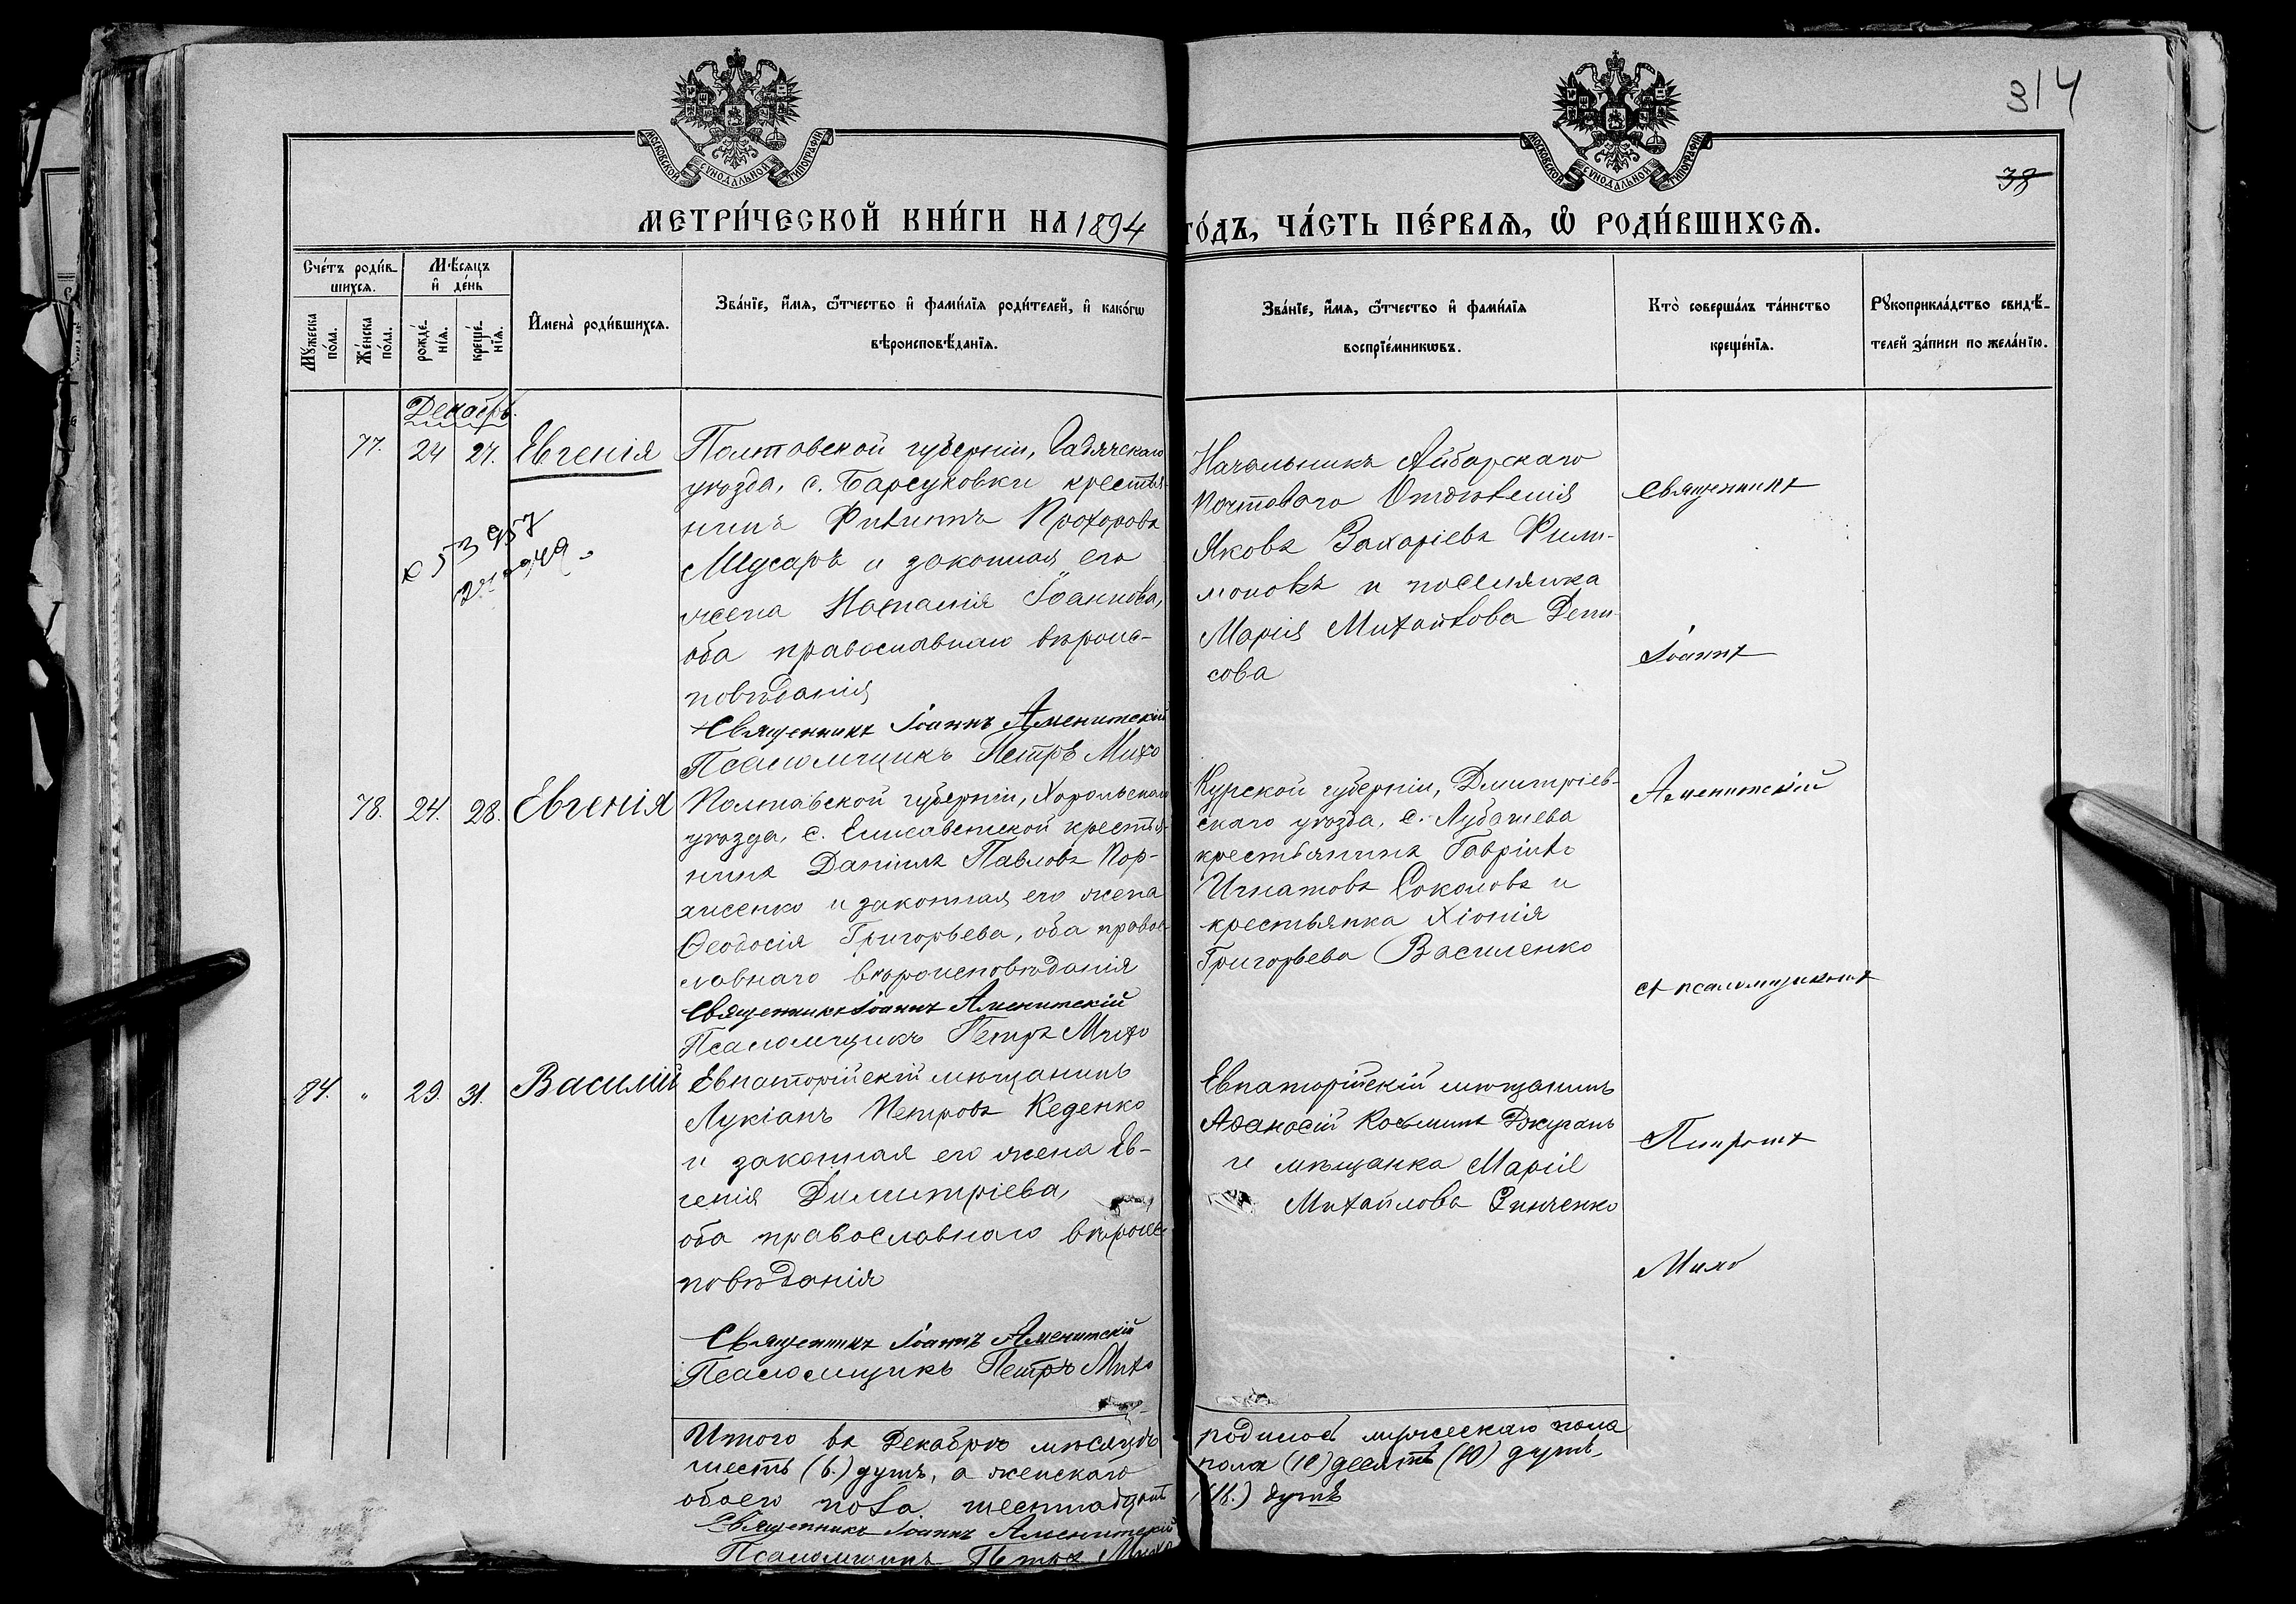 314
38
МОСКОВСКОЙ СѴНОДАЛЬНОЙ ТИПОГРАФІИ
МОСКОВСКОЙ СѴНОДАЛЬНОЙ ТИПОГРАФІИ
МЕТРИ́ЧЕСКОЙ КНИ́ГИ НА 1894 ГО́ДЪ, ЧА́СТЬ ПЕ́РВАѦ, Ѡ҆ РОДИ́ВШИХСѦ.
Сче́тъ роди́в-
шихсѧ.
Мꙋ́жеска
по́ла.
Же́нска
по́ла.
Мѣ́сѧцъ
и҆ де́нь
рожде́-
нїѧ.
креще́-
нїѧ.
И҆мена̀ роди́вшихсѧ.
Зва́нїе, и҆́мѧ, ѻ҆́тчество и҆ фами́лїѧ роди́телей, и҆ како́гѡ
вѣроисповѣ́данїѧ.
Зва́нїе, и҆́мѧ, ѻ҆́тчество и҆ фами́лїѧ
воспрїе́мникѡвъ.
Кто̀ соверша́лъ та́инство
креще́нїѧ.
Рꙋкоприкла́дство свидѣ́-
телей за́писи по жела́нїю.
Декабрь.
77. 24 27. Евгенія
Полтавской губерніи, Гадячскаго
уѣзда, с. Барсуковки крестья-
нинъ Филиппъ Прохоровъ
и законная его
жена Наталія Іоаннова,
оба православнаго вѣроис-
повѣданія
Священникъ Іоаннъ Аменитскій
Псаломщикъ Петръ Михо
Начальникъ Айбарскаго
Почтоваго Отдѣленія
Яковъ Захаріевъ Фили-
моновъ и поселянка
Марія Михайлова Дени-
сова
Священникъ
Іоаннъ
Аменитскій
съ псаломщикомъ
Петромъ
Михо
78. 24. 28. Евгенія
Полтавской губерніи, Хорольскаго
уѣзда, с. Елисаветской крестья-
нинъ Даніилъ Павловъ Кор-
и законная его жена
Ѳеодосія Григорьева, оба правос-
лавнаго вѣроисповѣданія
Священникъ Іоаннъ Аменитскій
Псаломщикъ Петръ Михо
Курской губерніи, Дмитріев-
скаго уѣзда, с. Лубашева
крестьянинъ Гавріилъ
Игнатовъ Соколовъ и
крестьянка Хіонія
Григорьева Василенко
74. " 29. 31. Василій
Евпаторійскій мѣщанинъ
Лукіанъ Петровъ Кеденко
и законная его жена Ев-
генія Димитріева,
оба православнаго вѣроис-
повѣданія
Священникъ Іоаннъ Аменитскій
Псаломщикъ Петръ Михо
Евпаторійскій мѣщанинъ
Аѳанасій Косьминъ
и мѣщанка Марія
Михайлова Зинченко
Итого въ Декабрѣ мѣсяцѣ родилось мужескаго пола
шесть (6.) душъ, а женскаго пола (10) десять (10) душъ,
обоего пола шестнадцать (16.) душъ
Священникъ Іоаннъ Аменитскій
Псаломщикъ Петръ Михо